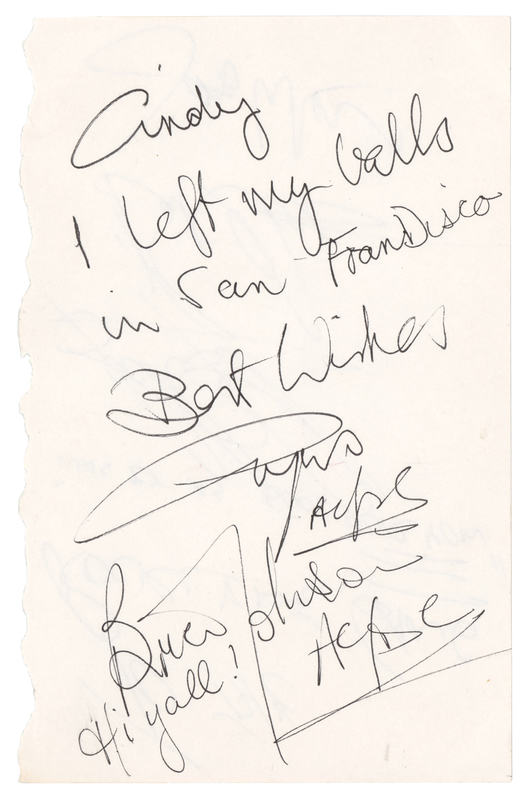 Cindy
I left my balls
in San Frandisco
Best Wishes
Angus
ACDC
Brian Johnson
ACDC
Hi yall!